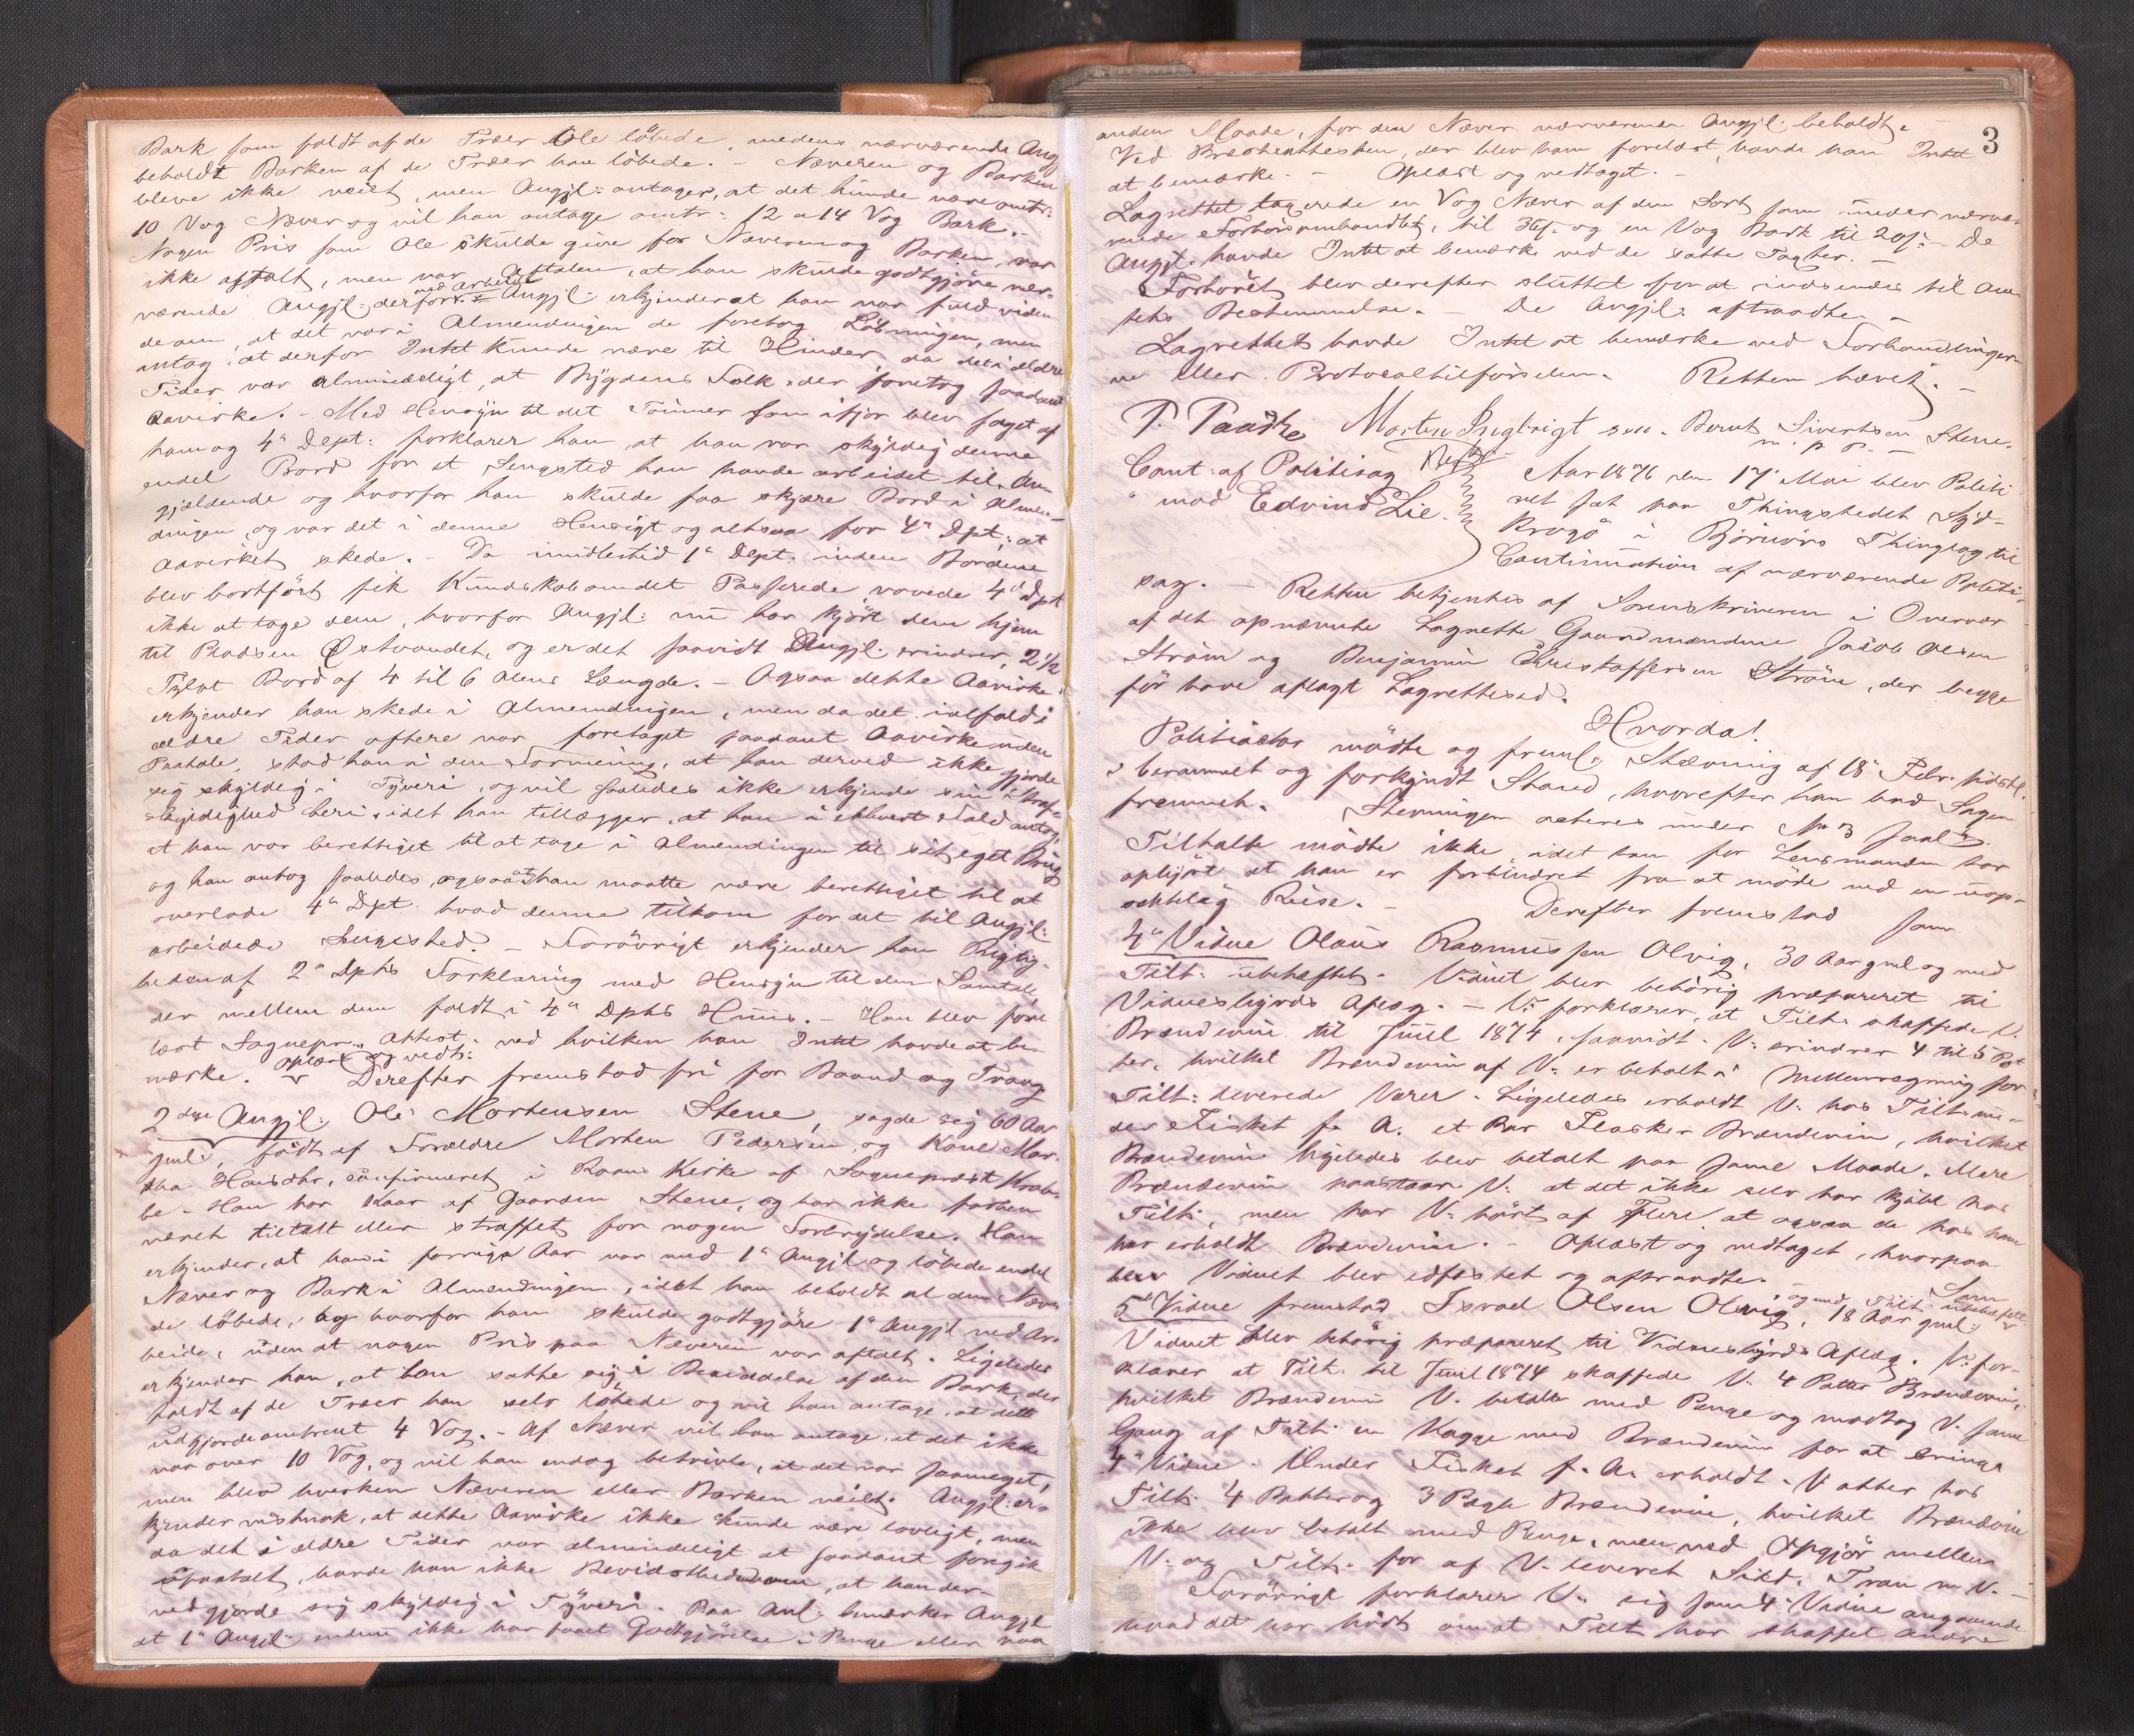 Bark som faldt af de Træer Ole löbede, medens nærværende Ang
beholdt Barken af de Træer han löbede. – Næveren og Barken
bleve ikke veiet, men Angjl: antager, at det kunde være omtr:
10 Vog Næver og vil han antage omtr: 12 a 14 Vog Bark. –
Nogen Pris som Ole skulde give for Næveren og Barken var
ikke aftalt, men var Aftalen, at han skulde godtgjöre nær-
værende Angjl: derfor med Arbeide. – Angjl: erkjender at han var fuldt viden
de om, at det var i Almendingen de foretog Löbningen, men
antog, at derfor Intet kunde være til Hinder, da det i ældre
Tider var almindeligt, at Bygdens Folk der foretog saadant
Aavirke. – Med Hensyn til det Tömmer som ifjor blev saget af
ham og 4de Dept: forklarer han at han var skyldig denne
endel Bord for et Sengsted han havde arbeidet til An-
gjældende og hvorfor han skulde faa skjære Bord i Almen-
dingen, og var det i denne Hensigt og altsaa for 4de Dpt: at
Aavirket skede. – Da imidlertid 1ste Dept: inden Bordene
blev bortfört fik Kundskab om det Passerede, vovede 4de Dpt
ikke at tage dem, hvorfor Angjl: nu har kjört dem hjem
til Pladsen Östvandet, og er det saavidt Angjl: erindrer, 2 1/2
Tylvt Bord af 4 til 6 Alens Længde. – Ogsaa dette Aavirke
erkjender han skede i Almendingen, men da det ialfald i
ældre Tider oftere var foretaget saadant Aavirke uden
Paatale, stod han i den Formening, at han derved ikke gjorde
sig skyldig i Tyveri, og vil saaledes ikke erkjende sin Straf-
skyldighed heri, idet han tillægger, at han i ethvert Fald antog,
at han var berettiget til at tage i Almendingen til sit eget Brug
og han antog saaledes, ogsaa at han maatte være berettiget til at
overlade 4de Dpt. hvad denne tilkom for det til Angjl:
arbeidede Sengested. – Forövrigt erkjender han Rigtig-
heden af 2den Dpts Forklaring med Hensyn til den Samtale,
der mellem dem faldt i 4de Dpts Huus. – Han blev fore
læst Sognepr. Attest, ved hvilken han Intet havde at be-
mærke. Oplæst og vedt: Derefter fremstod fri for Baand og Tvang
2den Angjl: Ole Mortensen Stene, sagde sig 60 Aar
gml:, födt af Forældre Morten Pedersen og Kone Mar-
tha Hansdtr, confirmeret i Roans Kirke af Sognepræst Krab-
be. – Han har Kaar af Gaarden Stene, og har ikke forhen
været tiltalt eller straffet for nogen Forbrydelse. Han
erkjender, at han i forrige Aar var med 1ste Angjl og löbede endel
Næver og Bark i Almendingen, idet han beholdt al den Næver
de löbede, og hvorfor han skulde godtgjöre 1ste Angjl ved Ar-
beide, uden at nogen Pris paa Næveren var aftalt. Ligeledes
erkjender han, at han satte sig i Besiddelse af den Bark, der
faldt af de Træer han selv löbede og vil han antage, at dette
udgjorde omtrent 4 Vog. – Af Næver vil han antage at det ikke
var over 10 Vog, og vil han endog betvivle, at det var saameget,
men blev hverken Næveren eller Barken veiet. Angjl: er-
kjender vistnok, at dette Aavirke ikke kunde være lovligt, men
da det i ældre Tider var almindeligt at saadant foregik
upaatalt, havde han ikke Bevidstheden om, at han der-
ved gjorde sig skyldig i Tyveri. – Paa Anl: bemærker Angjl
at 1ste Angjl: endnu ikke har faaet Godtgjörelse i Penge eller paa
3
anden Maade, for den Næver nærværende Angjl: beholdt. –
Ved Præsteattesten, der blev ham forelæst, havde han Intet
at bemærke. – Oplæst og vedtaget. –
Lagrettet taxerede en Vog Næver af den Sort som under nærvæ-
rende Forhör omhandlet, til 36 s. og en Vog Bark til 20 s. – De
Angjl. havde Intet at bemærke ved de satte Taxter. –
Forhöret blev derefter sluttet for at indsendes til Am
tets Bestemmelse. – De Angjl: aftraadte. –
Lagrettet havde Intet at bemærke ved Forhandlinger-
ne eller Protocoltilförselen. Retten hævet. –
P. Paaske Morten Ingbrigt sen. Bernt Sivertsen Stene.
m. p. p. –
Cont: af Politisag
mod Edvind Lie.
Aar 1876 den 17. Mai blev Politi
ret sat paa Thingstedet Syd-
krogö i Björnörs Thinglag til
Continuation af nærværende Politi-
sag. – Retten betjentes af Sorenskriveren i Overvær
af det opnævnte Lagrette Gaardmændene Jacob Olsen
Ström og Benjamin Christoffersen Ström, der begge
för have aflagt Lagrettesed.
Hvorda!
Politiactor mödte og freml. Stævning af 18 Febr. sidstl.
i berammet og forkyndt Stand, hvorefter han bad Sagen
fremmet. Stevningen acteres under No 3 saal.
Tiltalte mödte ikke, idet han for Lensmanden har
oplyst at han er forhindret fra at möde ved en uop-
sættelig Reise. – Derefter fremstod som
4de Vidne Olaus Rasmussen Olvig, 30 Aar gml og med
Tilt: ubehæftet. Vidnet blev behörig præpareret til
Vidnesbyrds Aflæg. – V: forklarer, at Tilt: skaffede V.
Brændeviin til Juul 1874, saavidt V: erindrer 4 til 5 Pot
ter, hvilket Brændeviin af V: er betalt i Mellemregning for
Tilt: leverede Varer. Ligeledes erholdt V. hos Tilt: un-
der Fisket f. A. et Par Flasker Brændeviin, hvilket
Brændeviin ligeledes blev betalt paa samme Maade. Mere
Brændeviin paastaar V: at det ikke selv har kjöbt hos
Tilt:, men har V: hört af Flere at ogsaa de hos ham
har erholdt Brændeviin. – Oplæst og vedtaget, hvorpaa
Vidnet blev edfæstet og aftraadte. – Som
5te Vidne fremstod Isral Olsen Olvig, 18 Aar gml: og med Tilt ubehæftet
Vidnet blev behörig præpareret til Vidnesbyrds Aflæg. V. for-
klarer at Tilt. til Juul 1874 skaffede V. 4 Potter Brændeviin,
hvilket Brændeviin V. betalte med Penge og modtog V. samme
Gang af Tilt: en Kagge med Brændeviin for at bringe
4de Vidne. Under Fisket f. A. erholdt V atter hos
Tilt. 4 Potter og 3 Pægle Brændeviin, hvilket Brændeviin
ikke blev betalt med Penge, men ved Opgjör mellem
V. og Tilt. for af V. leveret Sild, Tran m. V. –
Forövrigt forklarer V. sig som 4de Vidne angaaende
hvad det har hört om at Tilt har skaffet Andre